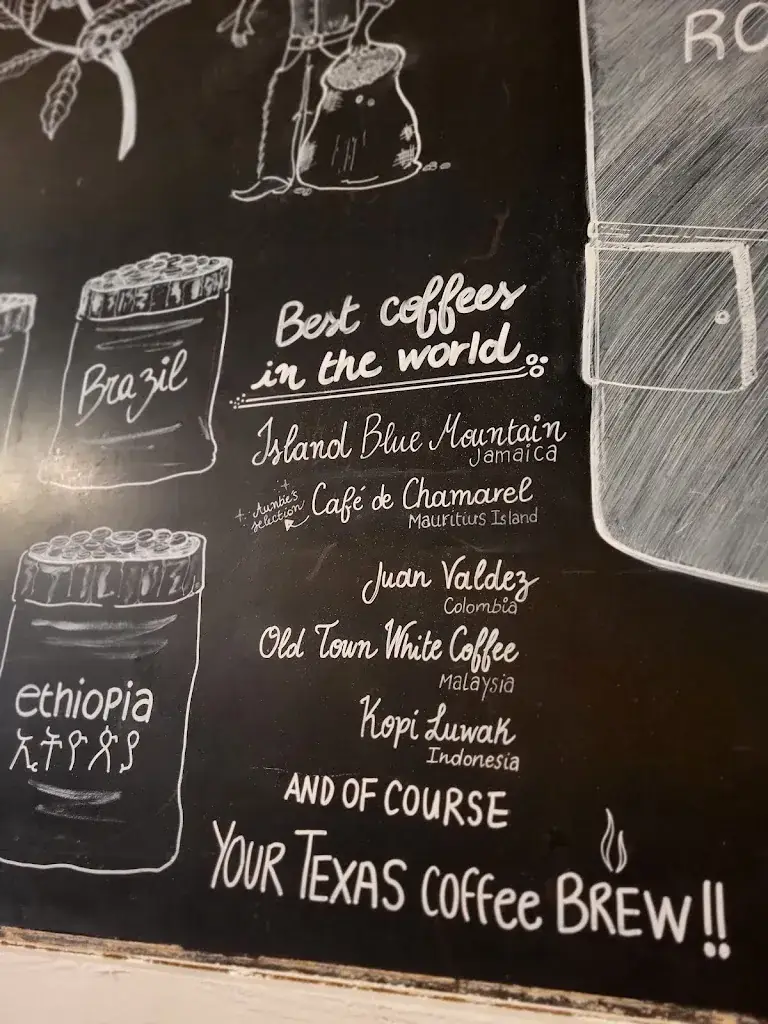 RO
Brazil
Best coffees
in the world
Island Blue Mountain
Jamaica
Auntie's
selection
Café de Chamarel
Mauritius Island
Juan Valdez
Colombia
Old Town White Coffee
Malaysia
ethiopia
ኢትዮጵያ
Kopi Luwak
Indonesia
AND OF COURSE
YOUR TEXAS Coffee BREW!!